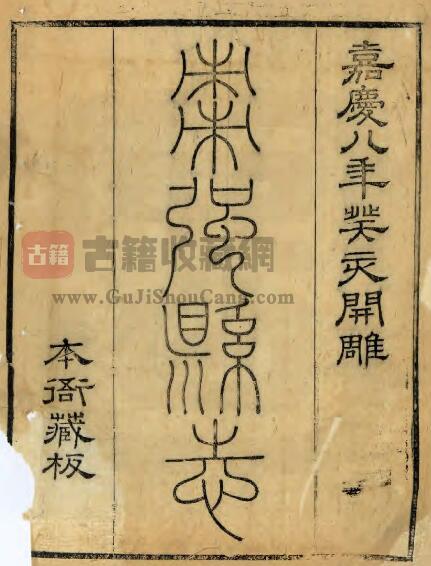 嘉慶八年癸亥開雕
棗強縣志
本衙藏板
古籍
古籍收藏網
www.GuJiShouCang.com